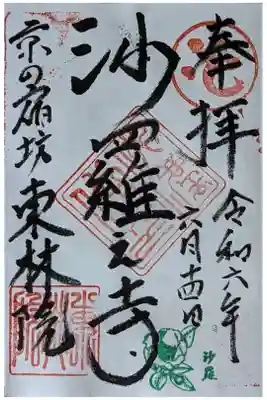 奉拝
令和六年
六月十四日
沙羅之寺
京の宿坊
東林院
沙羅